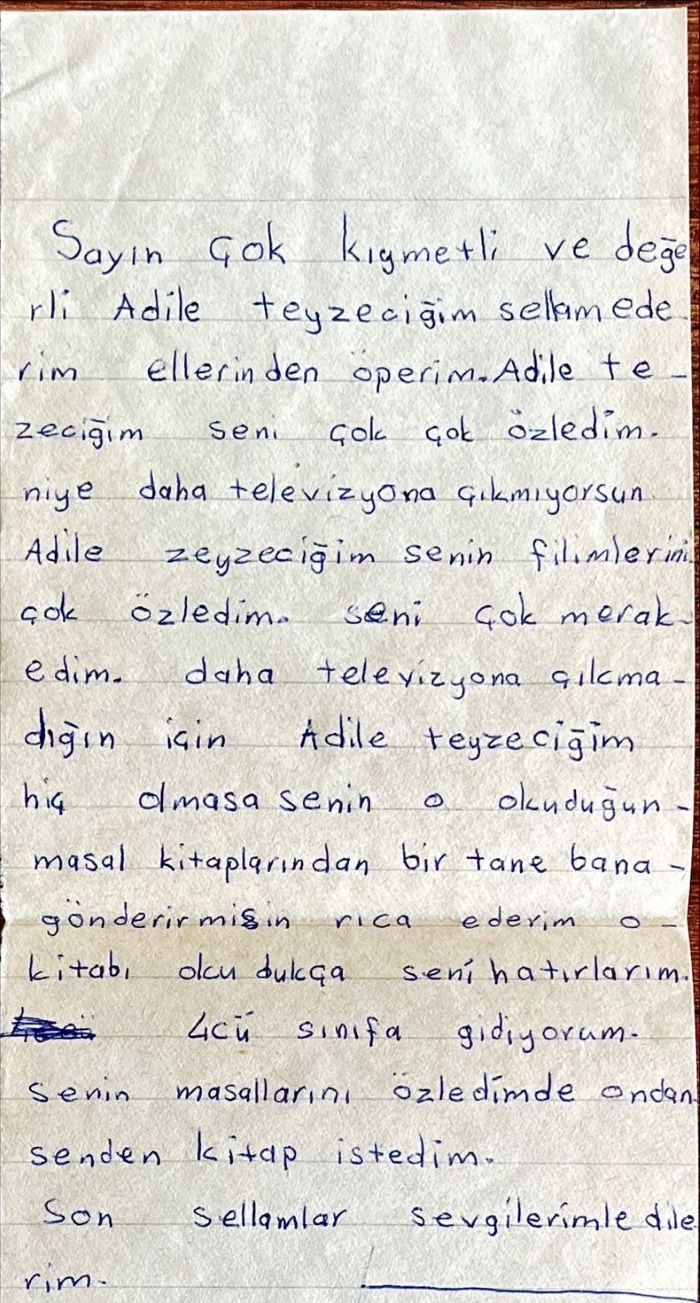 Sayın Çok kıymetli ve değe
rli Adile teyzeciğim sellamede.
rim ellerinden öperim. Adile te-
zeciğim seni çok çok özledim.
niye daha televizyona çıkmıyorsun
Adile zeyzeciğim senin filimlerini
çok özledim. seni çok merak-
edim. daha televizyona çıkma-
dığın için Adile teyzeciğim
hiç olmasa senin o okuduğun-
masal kitaplarından bir tane bana-
gönderirmisin rica ederim o-
kitabı okudukça seni hatırlarım.
4cü sınıfa gidiyorum.
senin masallarını özledimde ondan
senden kitap istedim.
Son sellamlar sevgilerimle dile
rim.